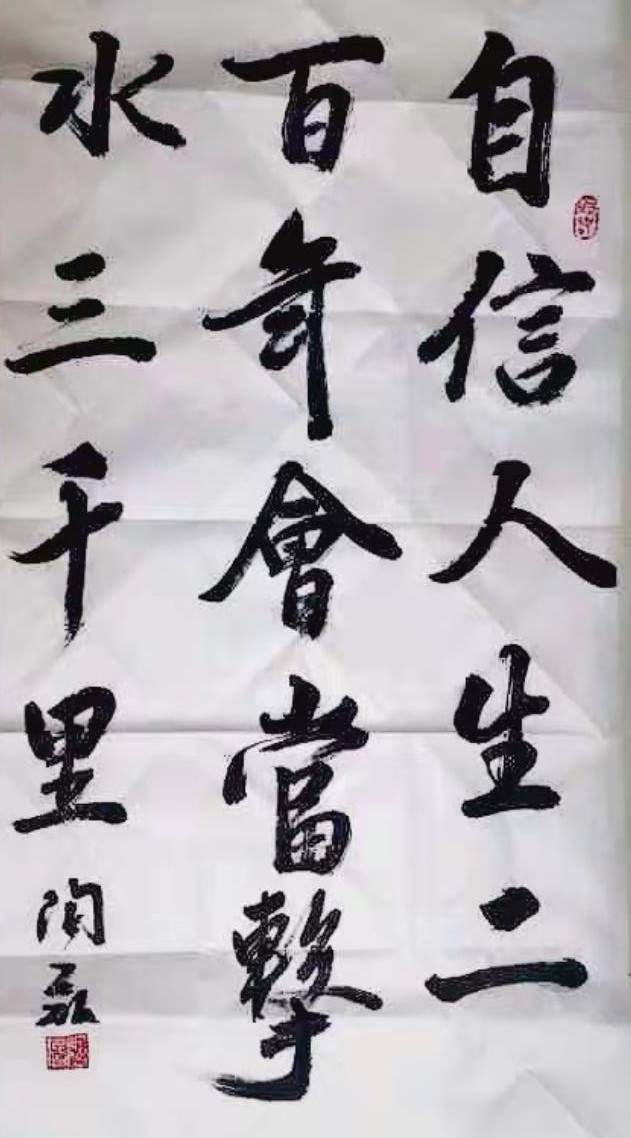 自信人生二
百年會當擊
水三千里